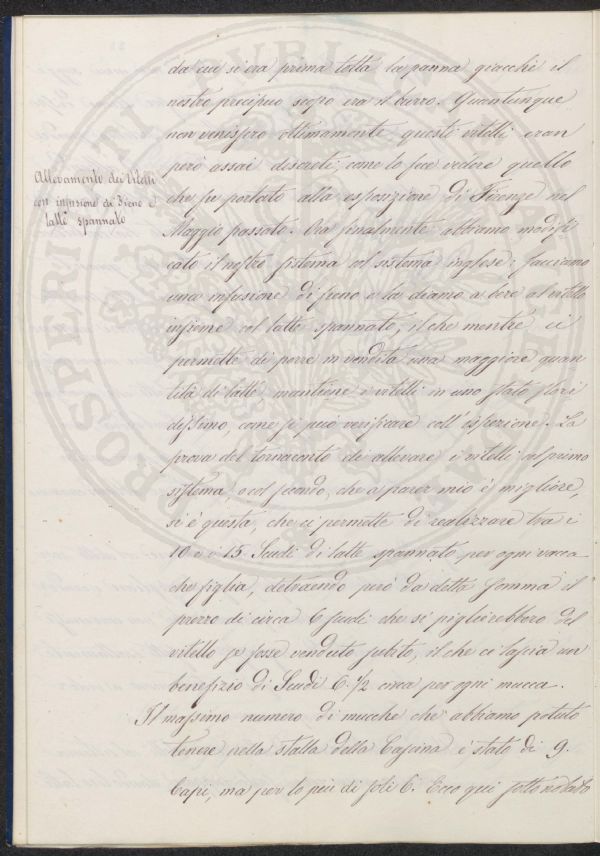 da cui si era prima tolta la panna giacchè il
nostro precipuo scopo era il burro. Quantunque
non venissero ottimamente questi vitelli eran
però assai discreti, come lo fece vedere quello
che fu portato alla esposizione di Firenze nel
Allevamento dei Vitelli
con infusione di Fieno e
latte spannato
Maggio passato. Ora finalmente abbiamo modifi
cato il nostro sistema col sistema inglese: facciamo
una infusione di fieno e la diamo a bere al vitello
insieme col latte spannato, il che mentre ci
permette di porre in vendita una maggiore quan
tità di latte mantiene i vitelli in uno stato flori
dissimo, come si può verificare coll'ispezione. La
prova del tornaconto di allevare i vitelli al primo
sistema, o col secondo, che a parer mio è migliore,
si è questa, che ci permette di realizzare tra i
10 e i 15 Scudi di latte spannato per ogni vacca
che figlia, detraendo però da detta somma il
prezzo di circa 6 scudi che si piglierebbero del
vitello se fosse venduto subito, il che ci lascia un
benefizio di Scudi 6.½ circa per ogni mucca.
Il massimo numero di mucche che abbiamo potuto
tenere nella stalla della Cascina è stato di 9.
Capi, ma per lo più di soli 6. Ecco qui sotto notato
PROSPERITATI PUBLICAE